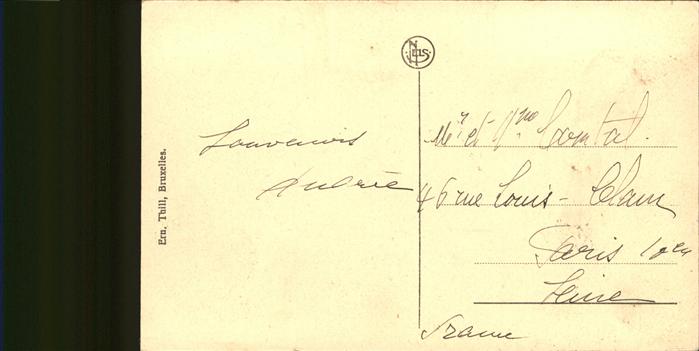 Ern. Thill, Bruxelles.
Nels
Souvenirs
Andrée
Mr et Mme
46 rue Louis-
Paris 10em
Seine
France